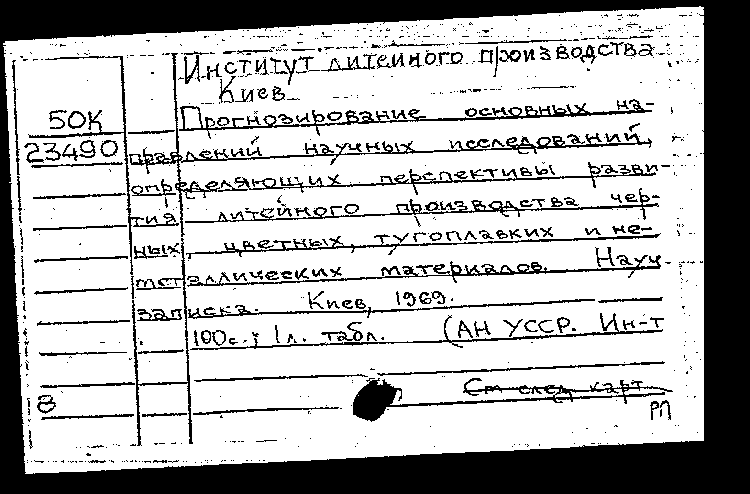 Институт литейного производства
Киев
50К
Прогнозирование основных на-
23490
правлений научных исследований,
определяющих перспективы разви-
тия литейного производства чер-
ных, цветных, тугоплавких и не-
металлических материалов. Науч.
записка. Киев, 1969.
100с.; 1л. табл. (АН УССР. Ин-т
См след. карт
8
РП